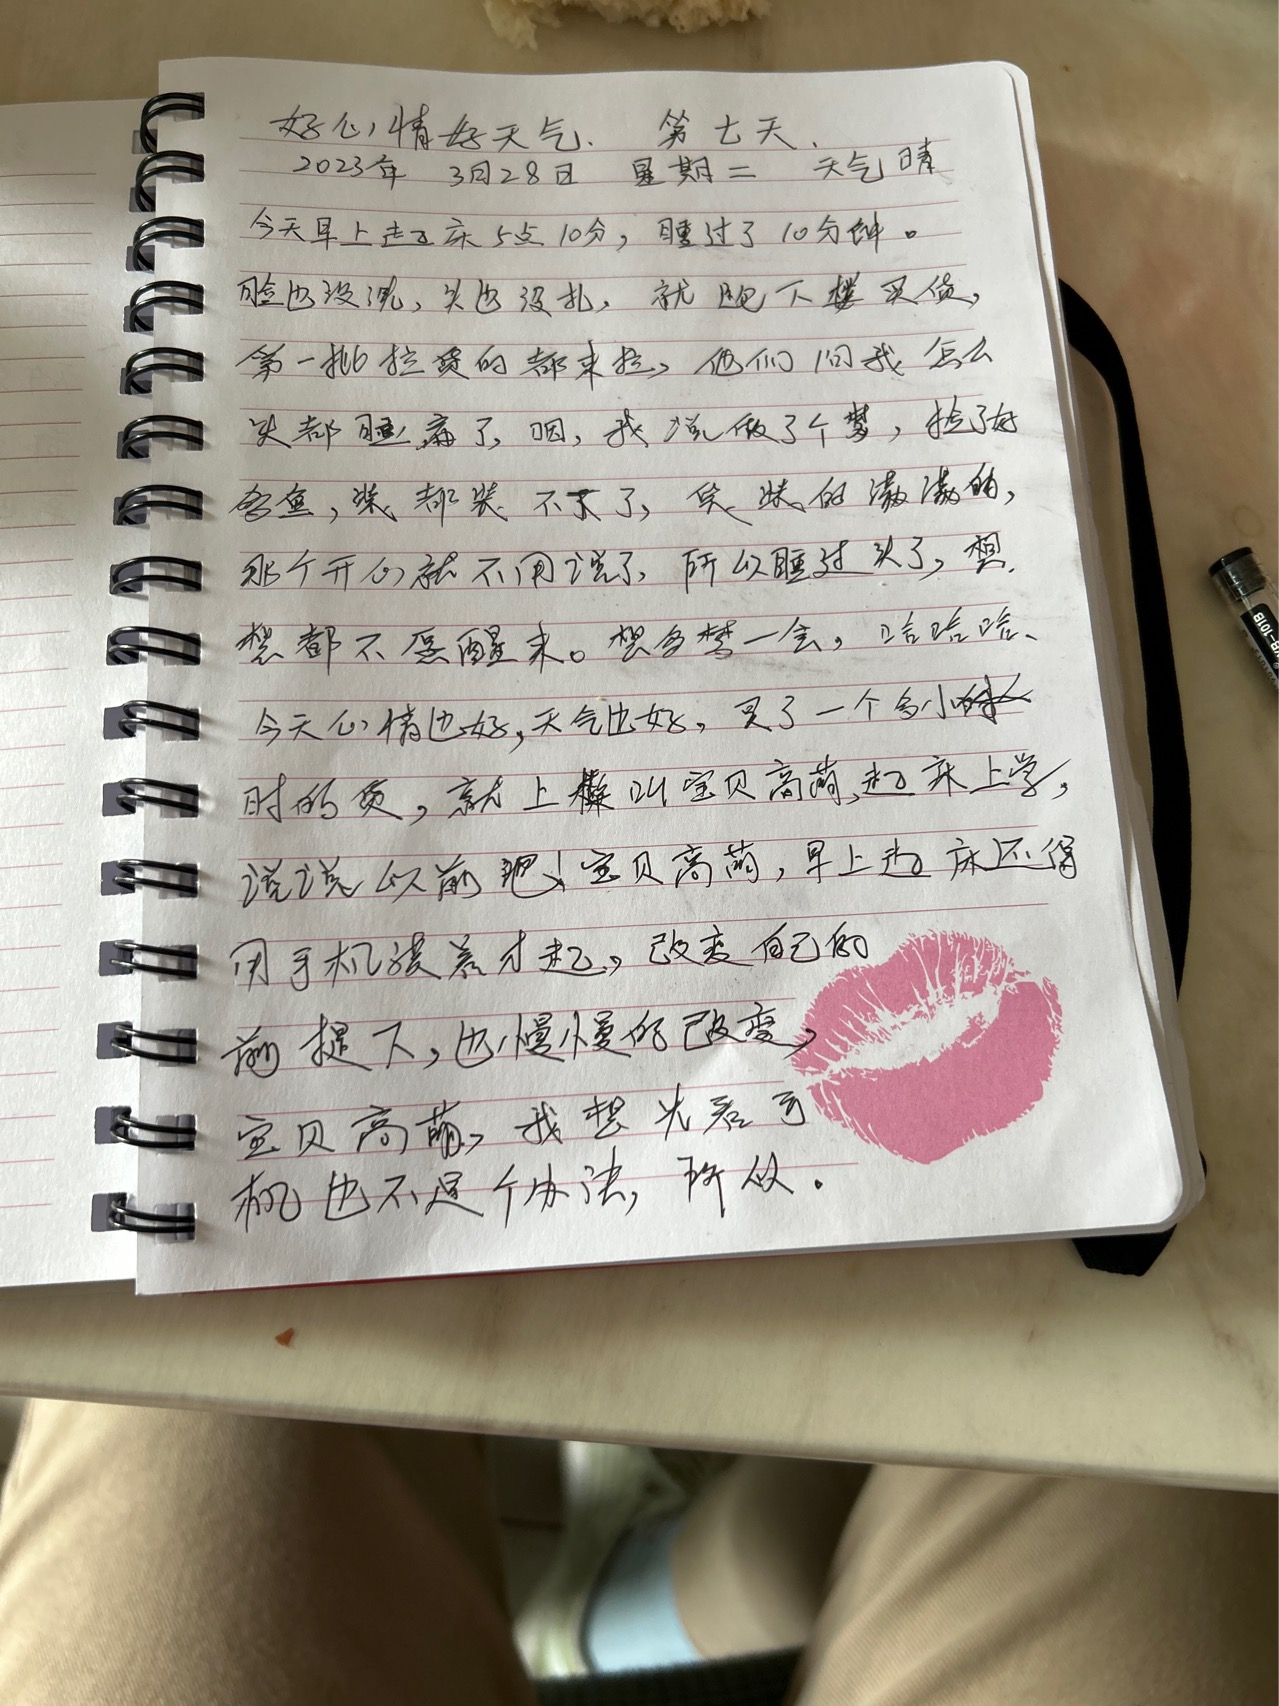 好心情好天气. 第七天.
2023年 3月28日 星期二 天气晴
今天早上起床5点10分,睡过了10分钟。
脸也没洗,头也没扎,就跑下楼买货,
第一批拉货的都来拉,他们问我怎么
头都睡痛了,我说做了个梦,捡了好
多鱼,装都装不下了,笑的
那个开心就不用说了,所以睡过头了,想
想都不愿醒来。想多梦一会,哈哈哈、
今天心情也好,天气也好,买了一个多小
时的货,就上楼叫宝贝高萌,起床上学,
说说以前吧!宝贝高萌,早上起床还得
用手机才起,改变自己的
前提下,也慢慢的改变,
宝贝高萌,我想光看手
机也不是个办法,所以.